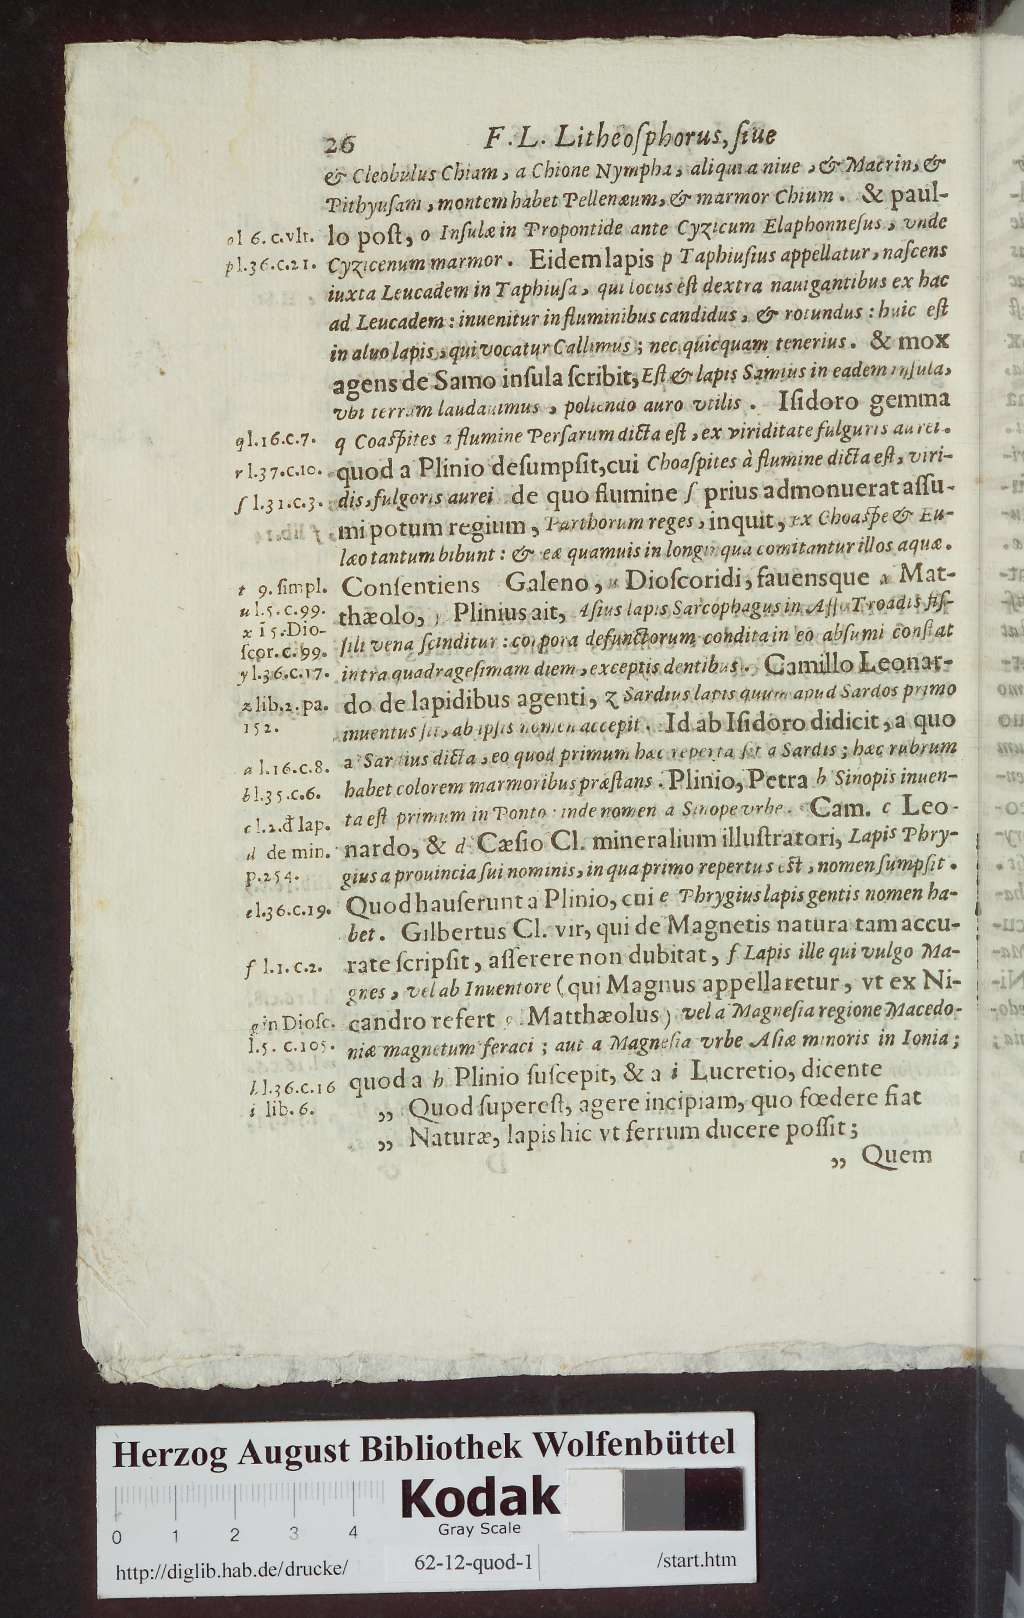 26 F. L. Litheoſphorus, ſiue
& Cleobulus Chiam, a Chione Nympha, aliqui a niue, & Macrin, &
Pithyuſam, montem habet Pellenæum, & marmor Chium. & paul-
o l 6. c. vlt. lo poſt, o Inſulæ in Propontide ante Cyzicum Elaphonneſus, vnde
p l.36.c.21. Cyzicenum marmor. Eidem lapis p Taphiuſius appellatur, naſcens
iuxta Leucadem in Taphiuſa, qui locus eſt dextra nauigantibus ex hac
ad Leucadem: inuenitur in fluminibus candidus, & rotundus: huic eſt
in aluo lapis, qui vocatur Callimus; nec quicquam tenerius. & mox
agens de Samo inſula ſcribit, Eſt & lapis Samius in eadem inſula,
vbi terram laudauimus, poliendo auro vtilis. Iſidoro gemma
q l.16.c.7. q Coaſpites a flumine Perſarum dicta eſt, ex viriditate fulguris aurei.
r l.37.c.10. quod a Plinio deſumpſit, cui Choaſpites à flumine dicta eſt, viri-
ſ l.31.c.3. dis, fulgoris aurei de quo flumine ſ prius admonuerat aſſu-
mi potum regium, Parthorum reges, inquit, ex Choaſpe & Eu-
læo tantum bibunt: & eæ quamuis in longinqua comitantur illos aquæ.
t 9. ſimpl. Conſentiens Galeno, u Dioſcoridi, fauensque x Mat-
u l.5.c.99. thæolo, y Plinius ait, Aſius lapis Sarcophagus in Aſſo Troadis fiſ-
x l5. Dio- ſili vena ſcinditur: corpora defunctorum condita in eo abſumi conſtat
ſcor. c. 99.
y l.36.c.17. intra quadrageſimam diem, exceptis dentibus. Camillo Leonar-
z lib.2. pa. do de lapidibus agenti, z Sardius lapis quum apud Sardos primo
152. inuentus ſit, ab ipſis nomen accepit. Id ab Iſidoro didicit, a quo
a l.16.c.8. a Sardius dicta, eo quod primum hæc reperta ſit a Sardis; hæc rubrum
b l.35.c.6. habet colorem marmoribus præſtans. Plinio, Petra b Sinopis inuen-
c l.2.đ lap. ta eſt primum in Ponto: inde nomen a Sinope vrbe. Cam. c Leo-
d de min. nardo, & d Cæſio Cl. mineralium illuſtratori, Lapis Phry-
p.254. gius a prouincia ſui nominis, in qua primo repertus eſt, nomen ſumpſit.
e l.36.c.19. Quod hauſerunt a Plinio, cui e Phrygius lapis gentis nomen ha-
bet. Gilbertus Cl. vir, qui de Magnetis natura tam accu-
f l.1.c.2. rate ſcripſit, aſſerere non dubitat, f Lapis ille qui vulgo Ma-
gnes, vel ab Inuentore (qui Magnus appellaretur, vt ex Ni-
g in Dioſc. candro refert g Matthæolus) vel a Magneſia regione Macedo-
l.5. c.105. niæ magnetum feraci; aut a Magneſia vrbe Aſiæ minoris in Ionia;
h l.36.c.16 quod a h Plinio ſuſcepit, & a i Lucretio, dicente
i lib. 6. „ Quod ſupereſt, agere incipiam, quo fœdere fiat
„ Naturæ, lapis hic vt ferrum ducere poſſit;
„ Quem
Herzog August Bibliothek Wolfenbüttel
Kodak
Gray Scale
0 1 2 3 4
http://diglib.hab.de/drucke/ 62-12-quod-1 /start.htm